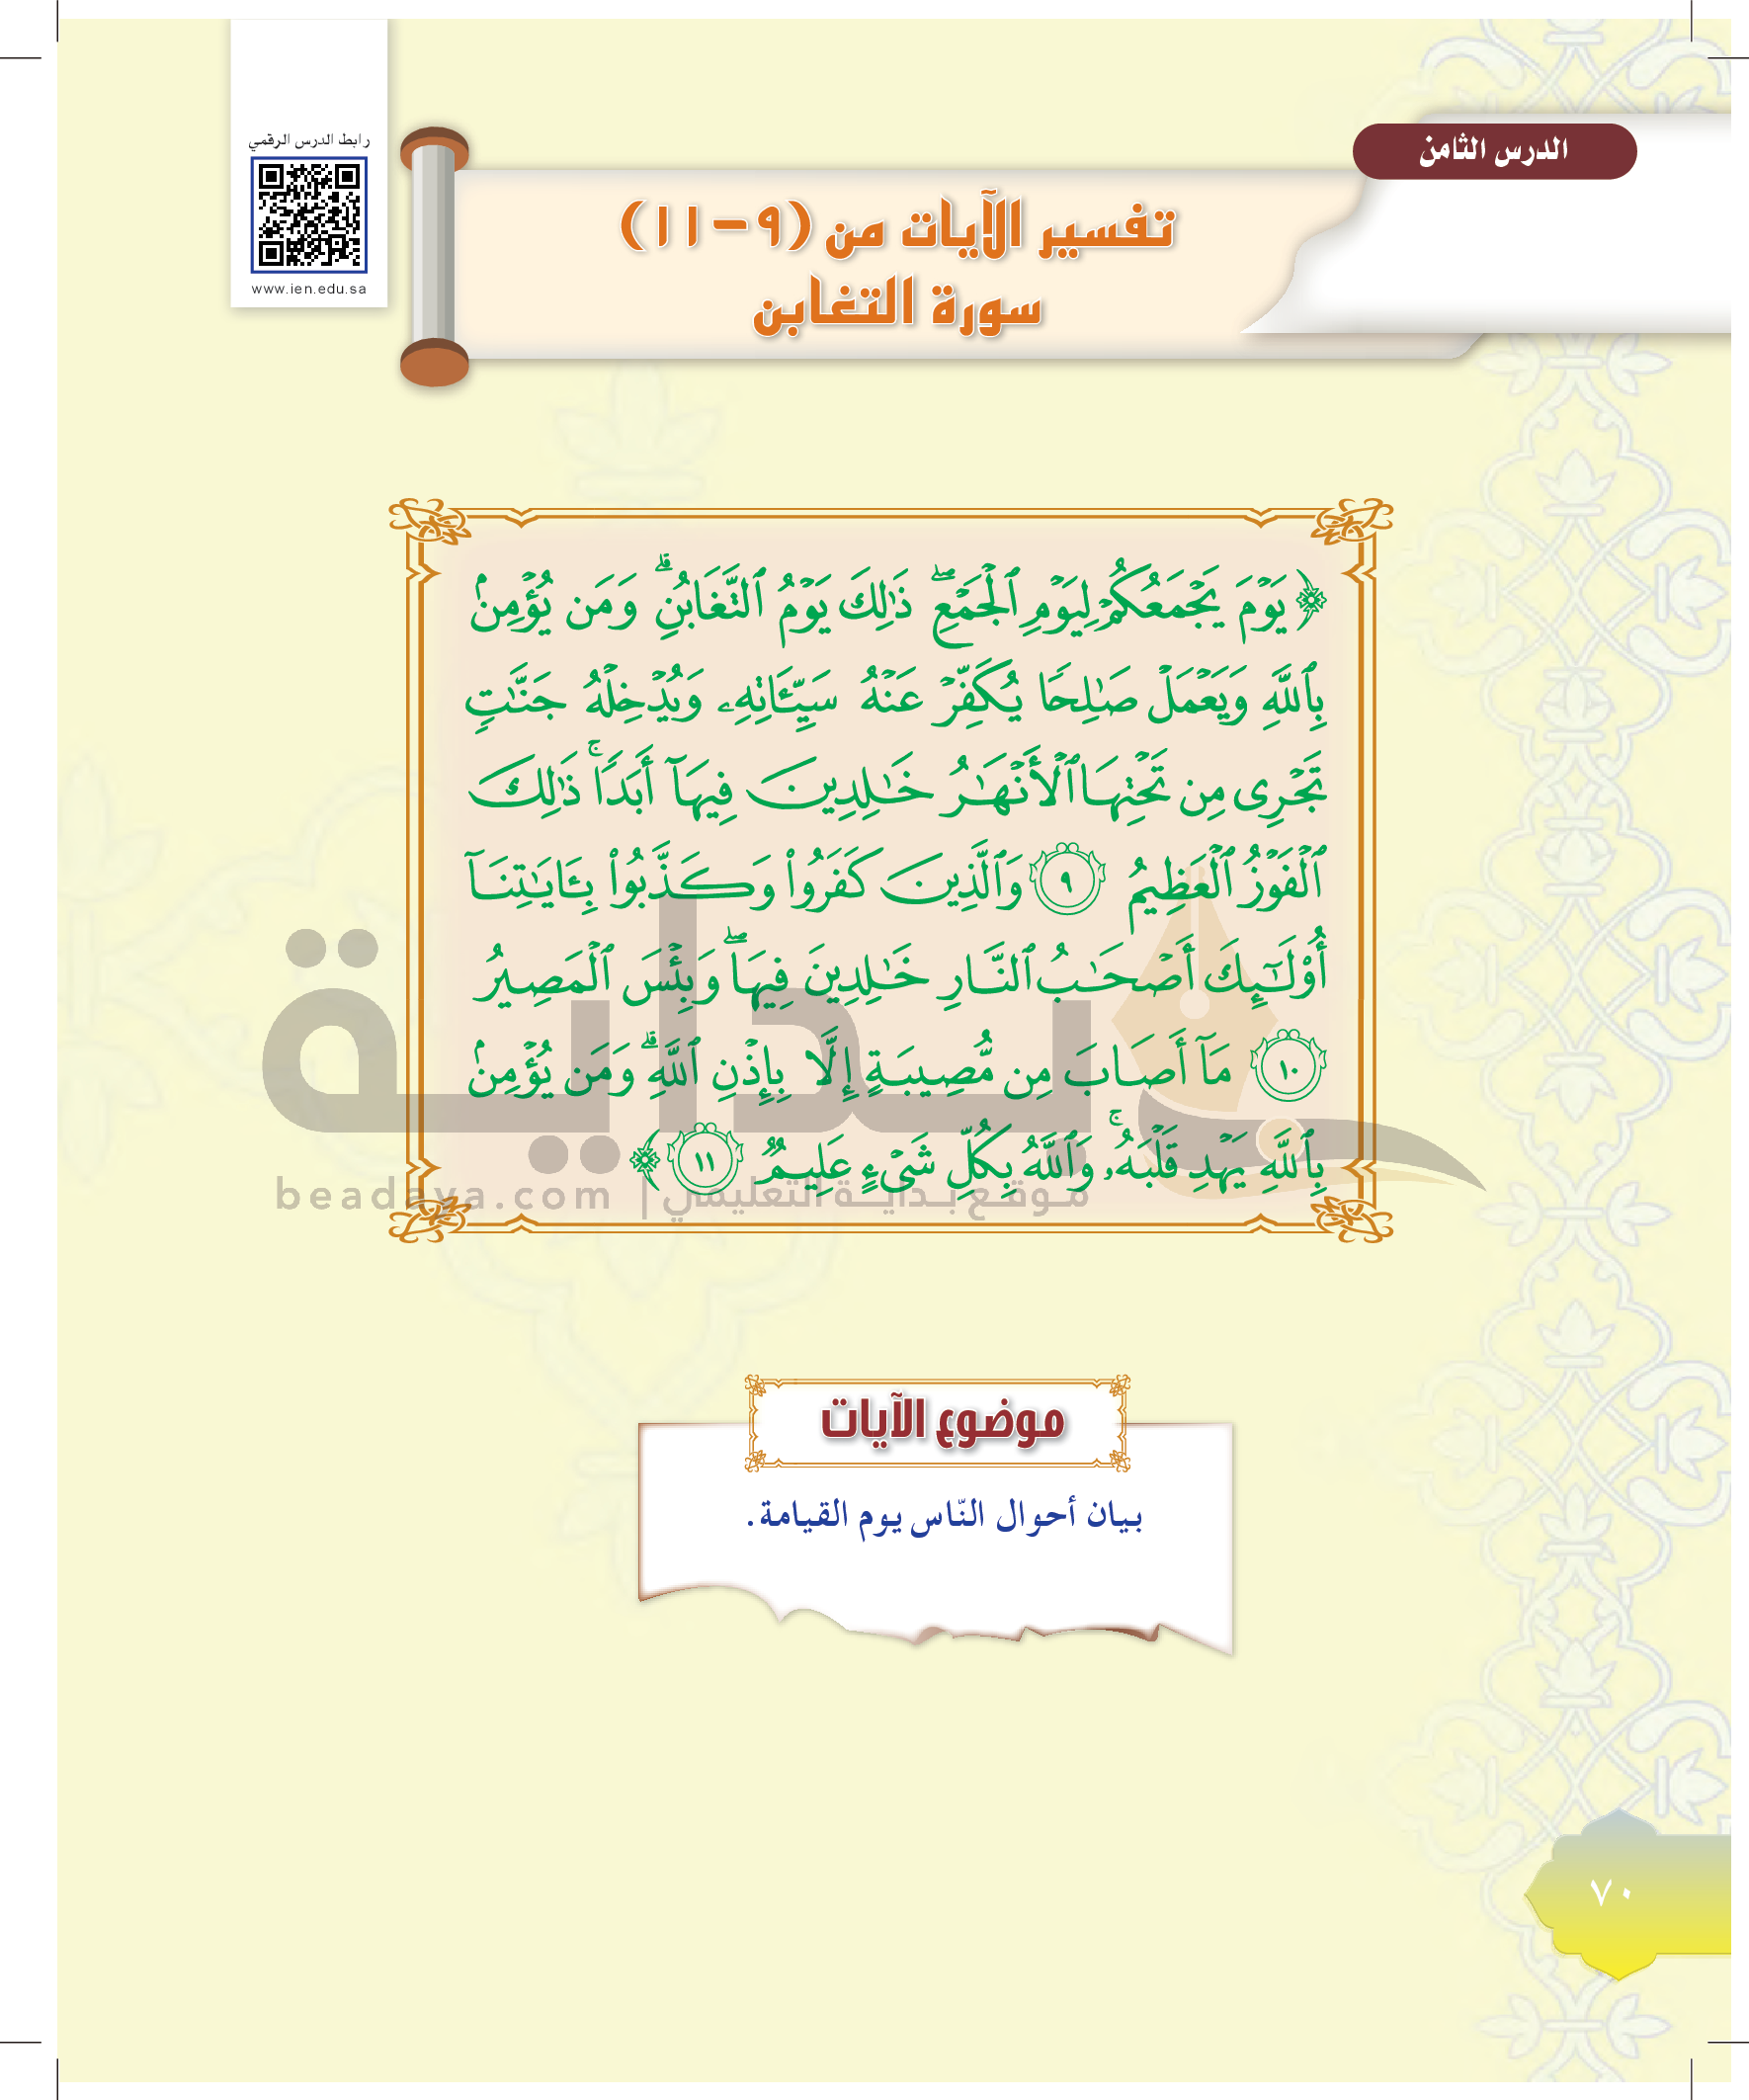 رابط الدرس الرقمي
www.ien.edu.sa
الدرس الثامن
تفسير الآيات من (٩-١١)
سورة التغابن
﴿ يَوْمَ يَجْمَعُكُمْ لِيَوْمِ ٱلْجَمْعِ ۖ ذَٰلِكَ يَوْمُ ٱلتَّغَابُنِ ۗ وَمَن يُؤْمِنۢ
بِٱللَّهِ وَيَعْمَلْ صَـٰلِحًا يُكَفِّرْ عَنْهُ سَيِّـَٔاتِهِۦ وَيُدْخِلْهُ جَنَّـٰتٍ
تَجْرِى مِن تَحْتِهَا ٱلْأَنْهَـٰرُ خَـٰلِدِينَ فِيهَآ أَبَدًا ۚ ذَٰلِكَ
ٱلْفَوْزُ ٱلْعَظِيمُ ٩ وَٱلَّذِينَ كَفَرُوا۟ وَكَذَّبُوا۟ بِـَٔايَـٰتِنَآ
أُو۟لَـٰٓئِكَ أَصْحَـٰبُ ٱلنَّارِ خَـٰلِدِينَ فِيهَا ۖ وَبِئْسَ ٱلْمَصِيرُ
١٠ مَآ أَصَابَ مِن مُّصِيبَةٍ إِلَّا بِإِذْنِ ٱللَّهِ ۗ وَمَن يُؤْمِنۢ
بِٱللَّهِ يَهْدِ قَلْبَهُۥ ۚ وَٱللَّهُ بِكُلِّ شَىْءٍ عَلِيمٌ ١١ ﴾
بداية
موقع بداية التعليمي | beadaya.com
موضوع الآيات
بيان أحوال النّاس يوم القيامة.
٧٠